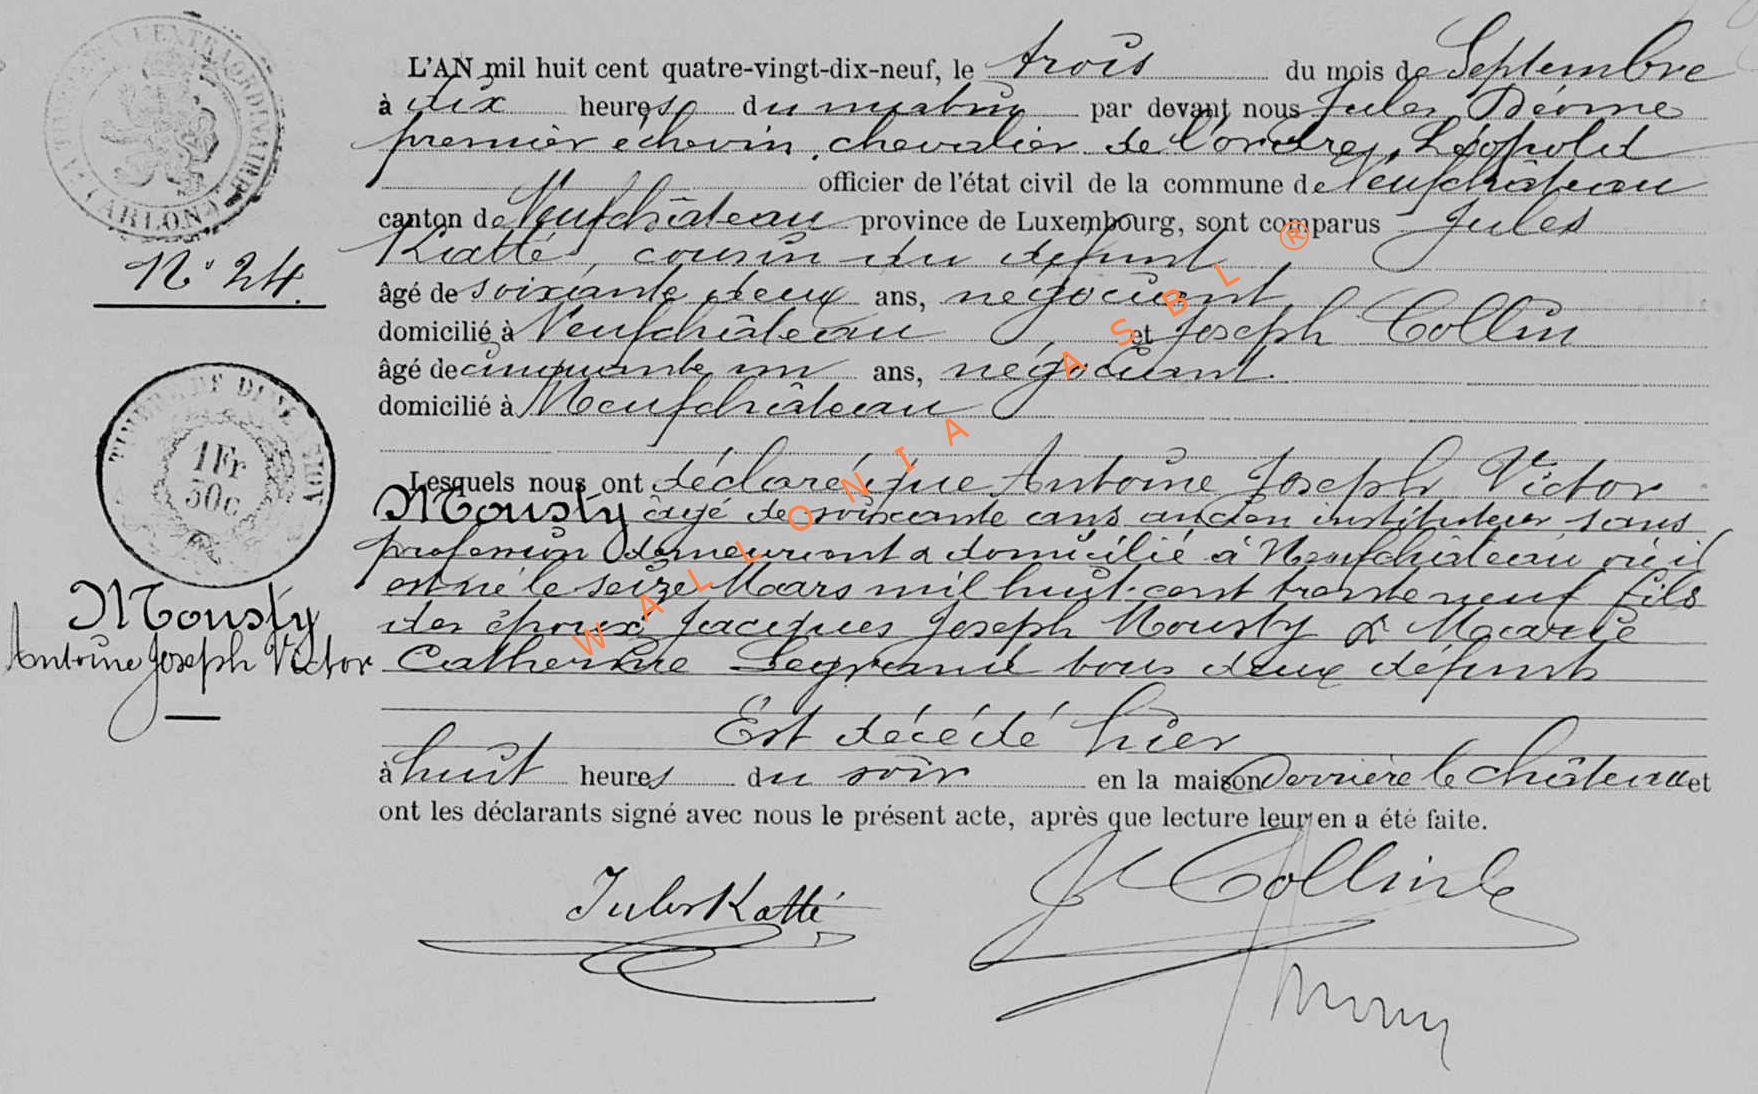 L'AN mil huit cent quatre-vingt-dix-neuf, le trois du mois de Septembre
à dix heures du matin par devant nous Jules Déome
premier échevin, chevalier de l'ordre Léopold
officier de l'état civil de la commune de Neufchâteau
canton de Neufchâteau province de Luxembourg, sont comparus Jules
Katté, cousin du défunt
N° 24.
âgé de soixante deux ans, négociant
domicilié à Neufchâteau et Joseph Collin
âgé de cinquante un ans, négociant.
domicilié à Neufchâteau
1 Fr
50c
Lesquels nous ont déclaré que Antoine Joseph Victor
Mousty âgé de soixante ans ancien instituteur sans
profession demeurant & domicilié à Neufchâteau où il
est né le seize Mars mil huit-cent trente neuf fils
des époux Jacques Joseph Mousty & Marie
Catherine Legrand tous deux défunts
Mousty
Antoine Joseph Victor
Est décédé hier
à huit heures du soir en la maison Derrière le château et
ont les déclarants signé avec nous le présent acte, après que lecture leur en a été faite.
Jules Katté J Collin
WALLONIA ASBL ®